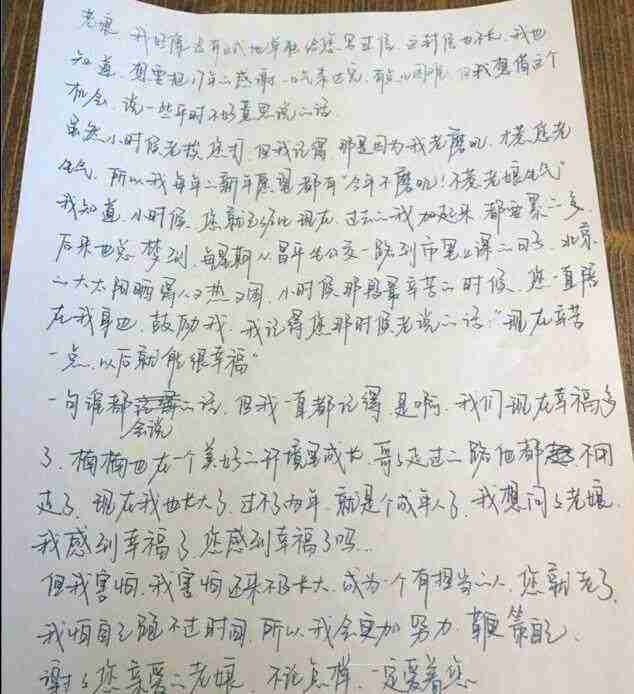 老娘,我好像没有正式地单独给您写过信,这封信也不长,我也
知道,想要把17年的感谢一口气表达完,有点儿困难,但我想借这个
机会,说一些平时不好意思说的话。
虽然小时候老挨您打,但我记得,那是因为我老磨叽,才惹您老
生气,所以我每年的新年愿望都有“今年不磨叽!不惹老娘生气”
我知道,小时候,您就已经比现在、过去的我加起来都要累的多,
后来也总梦到,每星期从昌平坐公交一路到市里上课的日子,北京
的大太阳晒得人又热又困,小时候那段最辛苦的时候,您一直陪
在我身边,鼓励我,我记得您那时候老说的话:“现在辛苦
一点,以后就能很幸福”
一句谁都会说的话,但我一直都记得,是啊,我们现在幸福多
了,楠楠也在一个美好的环境里成长,哥哥走过的路他都不用
走了,现在我也长大了,过不了几年,就是个成年人了,我想问问老娘,
我感到幸福了,您感到幸福了吗…
但我害怕,我害怕还来不及长大,成为一个有担当的人,您就老了,
我怕自己跑不过时间,所以我会更加努力,鞭策自己,
谢谢您亲爱的老娘,不论怎样,一定爱着您